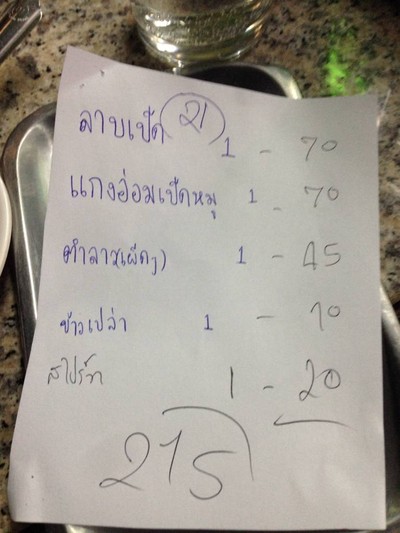 ลาบเป็ด 21 1 - 70
แกงอ่อมเป็ดหมู 1 - 70
ตำลาว(เผ็ดๆ) 1 - 45
ข้าวเปล่า 1 - 10
สไปร์ท 1 - 20
215